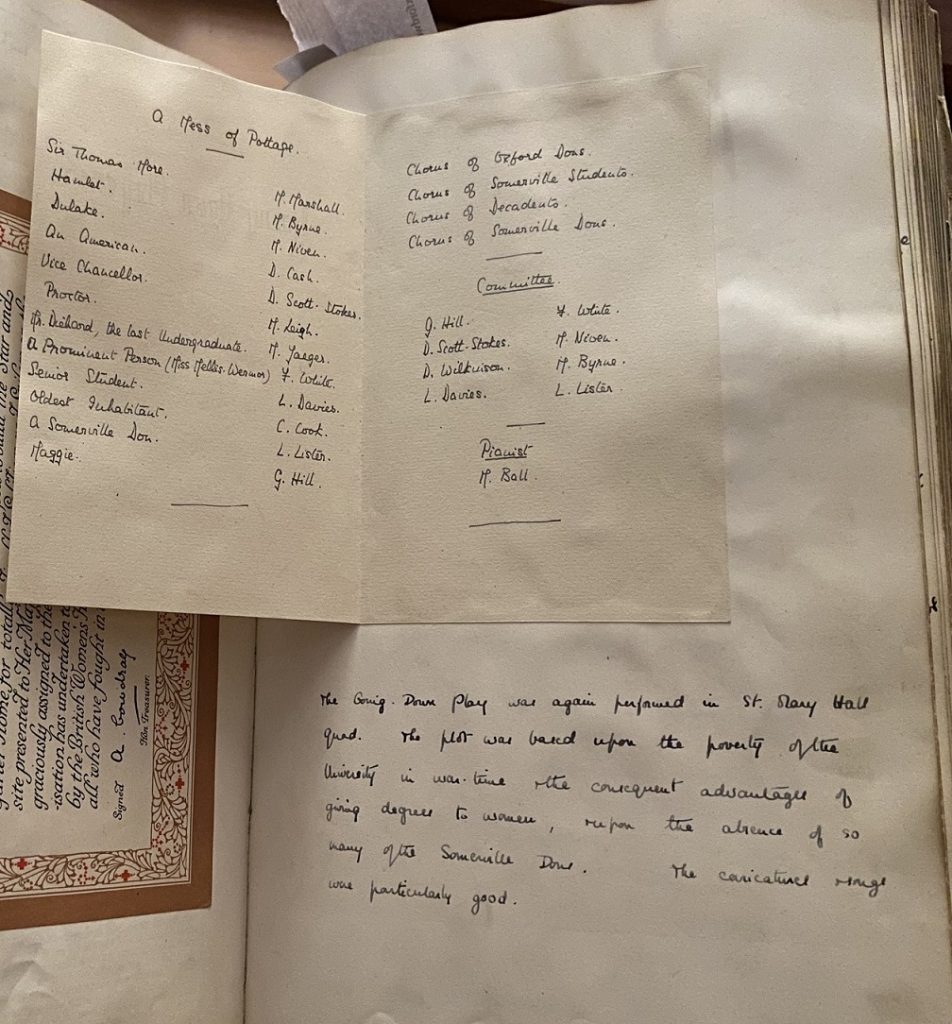 A Mess of Pottage.
Sir Thomas More. M. Marshall.
Hamlet. M. Byrne.
Dulake. M. Niven.
An American. D. Cash.
Vice Chancellor. D. Scott-Stokes.
Proctor. M. Leigh.
Mr. Diehard, the last Undergraduate. M. Jaeger.
A Prominent Person (Miss Mellis-Wermor) F. White.
Senior Student. L. Davies.
Oldest Inhabitant. C. Cook.
A Somerville Don. L. Lister.
Maggie. G. Hill.
Chorus of Oxford Dons.
Chorus of Somerville Students.
Chorus of Decadents.
Chorus of Somerville Dons.
Committee.
G. Hill. F. White.
D. Scott-Stokes. M. Niven.
D. Wilkinson. M. Byrne.
L. Davies. L. Lister.
Pianist
M. Ball.
The Going-Down Play was again performed in St. Mary Hall
quad. The plot was based upon the poverty of the
University in war-time & the consequent advantages of
giving degrees to women, & upon the absence of so
many of the Somerville Dons. The caricatures & songs
were particularly good.
Home for totally
site presented to Her
graciously assigned to the
isation has undertaken to
by the British Women's
all who have fought in
Signed
Hon Treasurer.
build the Star and